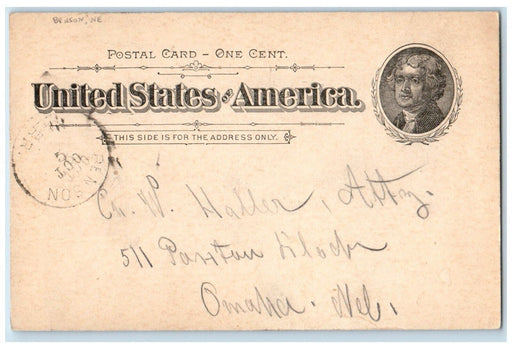 BENSON, NE
POSTAL CARD - ONE CENT.
United States of America.
THIS SIDE IS FOR THE ADDRESS ONLY.
BENSON
OCT
W. Haller, Atty.
511 Paxton Block
Omaha. Neb.